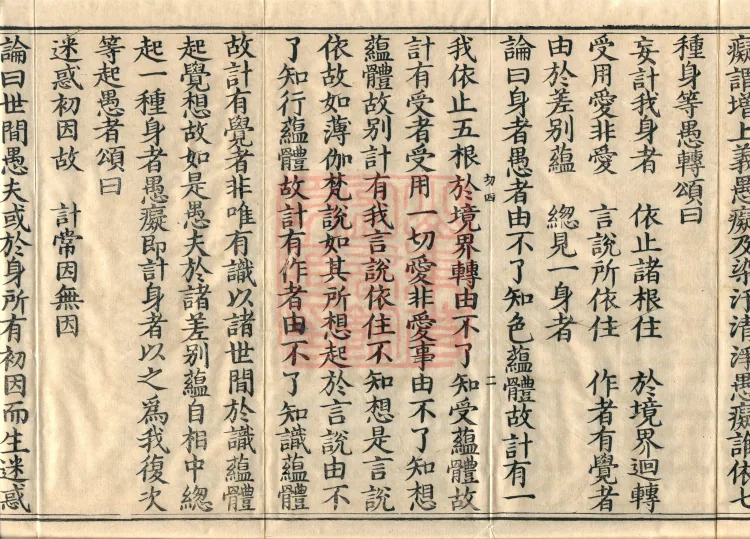 癡謂增上義愚癡及染汙清淨愚癡謂依七
種身等愚轉頌曰
妄計我身者　依止諸根住　於境界迴轉
受用愛非愛　言說所依住　作者有覺者
由於差別蘊　總見一身者
論曰身者愚者由不了知色蘊體故計有一
切四　二
我依止五根於境界轉由不了知受蘊體故
計有受者受用一切愛非愛事由不了知想
蘊體故別計有我言說依住不知想是言說
依故如薄伽梵說如其所想起於言說由不
了知行蘊體故計有作者由不了知識蘊體
故計有覺者非唯有識以諸世間於識蘊體
起覺想故如是愚夫於諸差別蘊自相中總
起一種身者愚癡即計身者以之為我復次
等起愚者頌曰
迷惑初因故　計常因無因
論曰世間愚夫或於身所有初因而生迷惑